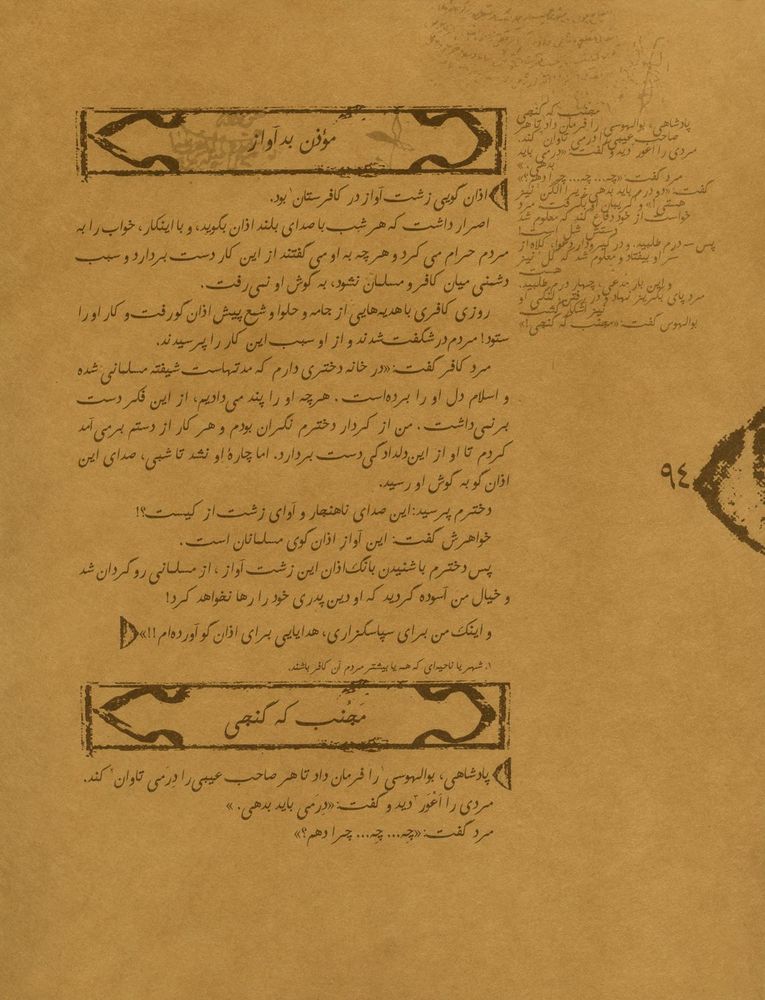 مؤذن بد آواز
اذان گویی زشت آواز در کافرستان۱ بود.
اصرار داشت که هر شب با صدای بلند اذان بگوید، و با اینکار، خواب را به
مردم حرام می کرد و هر چه به او می گفتند از این کار دست بردارد و سبب
دشمنی میان کافر و مسلمان نشود، به گوش او نمی رفت.
روزی کافری با هدیه هایی از جامه و حلوا و شمع پیش اذان گو رفت و کار او را
ستود! مردم در شگفت شدند و از او سبب این کار را پرسیدند.
مرد کافر گفت: «در خانه دختری دارم که مدتهاست شیفته مسلمانی شده
و اسلام دل او را برده است. هر چه او را پند می دادیم، از این فکر دست
بر نمی داشت. من از کردار دخترم نگران بودم و هر کار از دستم بر می آمد
کردم تا او از این دلدادگی دست بردارد. اما چارهٔ او نشد تا شبی، صدای این
اذان گو به گوش او رسید.
دخترم پرسید: این صدای ناهنجار و آوای زشت از کیست؟!
خواهرش گفت: این آواز اذان گوی مسلمانان است.
پس دخترم با شنیدن بانگ اذان این زشت آواز، از مسلمانی روگردان شد
و خیال من آسوده گردید که او دین پدری خود را رها نخواهد کرد!
و اینک من برای سپاسگزاری، هدایایی برای اذان گو آورده ام!!»
۱. شهر یا ناحیه ای که همه یا بیشتر مردم آن کافر باشند.
مَجُنب که گنجی
پادشاهی، بوالهوسی۱ را فرمان داد تا هر صاحب عیبی را دِرَمی تاوان۲ کند.
مردی را اَعْوَر۳ دید و گفت: «دِرَمی باید بدهی.»
مرد گفت: «چِه... چِه... چرا دهم؟»
مجنب که گنجی
پادشاهی، بوالهوسی را فرمان داد تا هر
صاحب عیبی را درمی تاوان کند.
مردی را اعور دید و گفت: «درمی باید
بدهی.»
مرد گفت: «چه... چه... چرا دهم؟»
گفت: «دو درم باید بدهی زیرا الکن نیز
هستی!» و گریبان او بگرفت. مرد
خواست از خود دفاع کند که معلوم شد
دستش شل است!
پس سه درم طلبید. و در گیرودار دعوا، کلاه از
سر او بیفتاد و معلوم شد که کل نیز
هست
و این بار مدعی، چهار درم طلبید.
مرد پای بگریز نهاد و در رفتن، لنگی او
نیز آشکار گشت
بوالهوس گفت: «مجنب که گنجی!»
۹٤